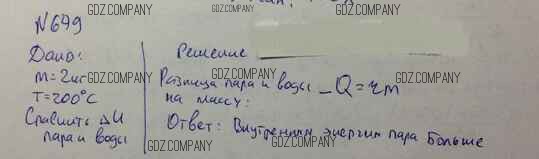 GDZ.COMPANY
GDZ.COMPANY
№ 649
Дано: Решение
m = 2 кг GDZ.COMPANY GDZ.COMPANY
T = 200°C Разница пара и воды – Q = rm
на массу:
Сравнить ΔU
пара и воды
Ответ: Внутренняя энергия пара больше
GDZ.COMPANY GDZ.COMPANY